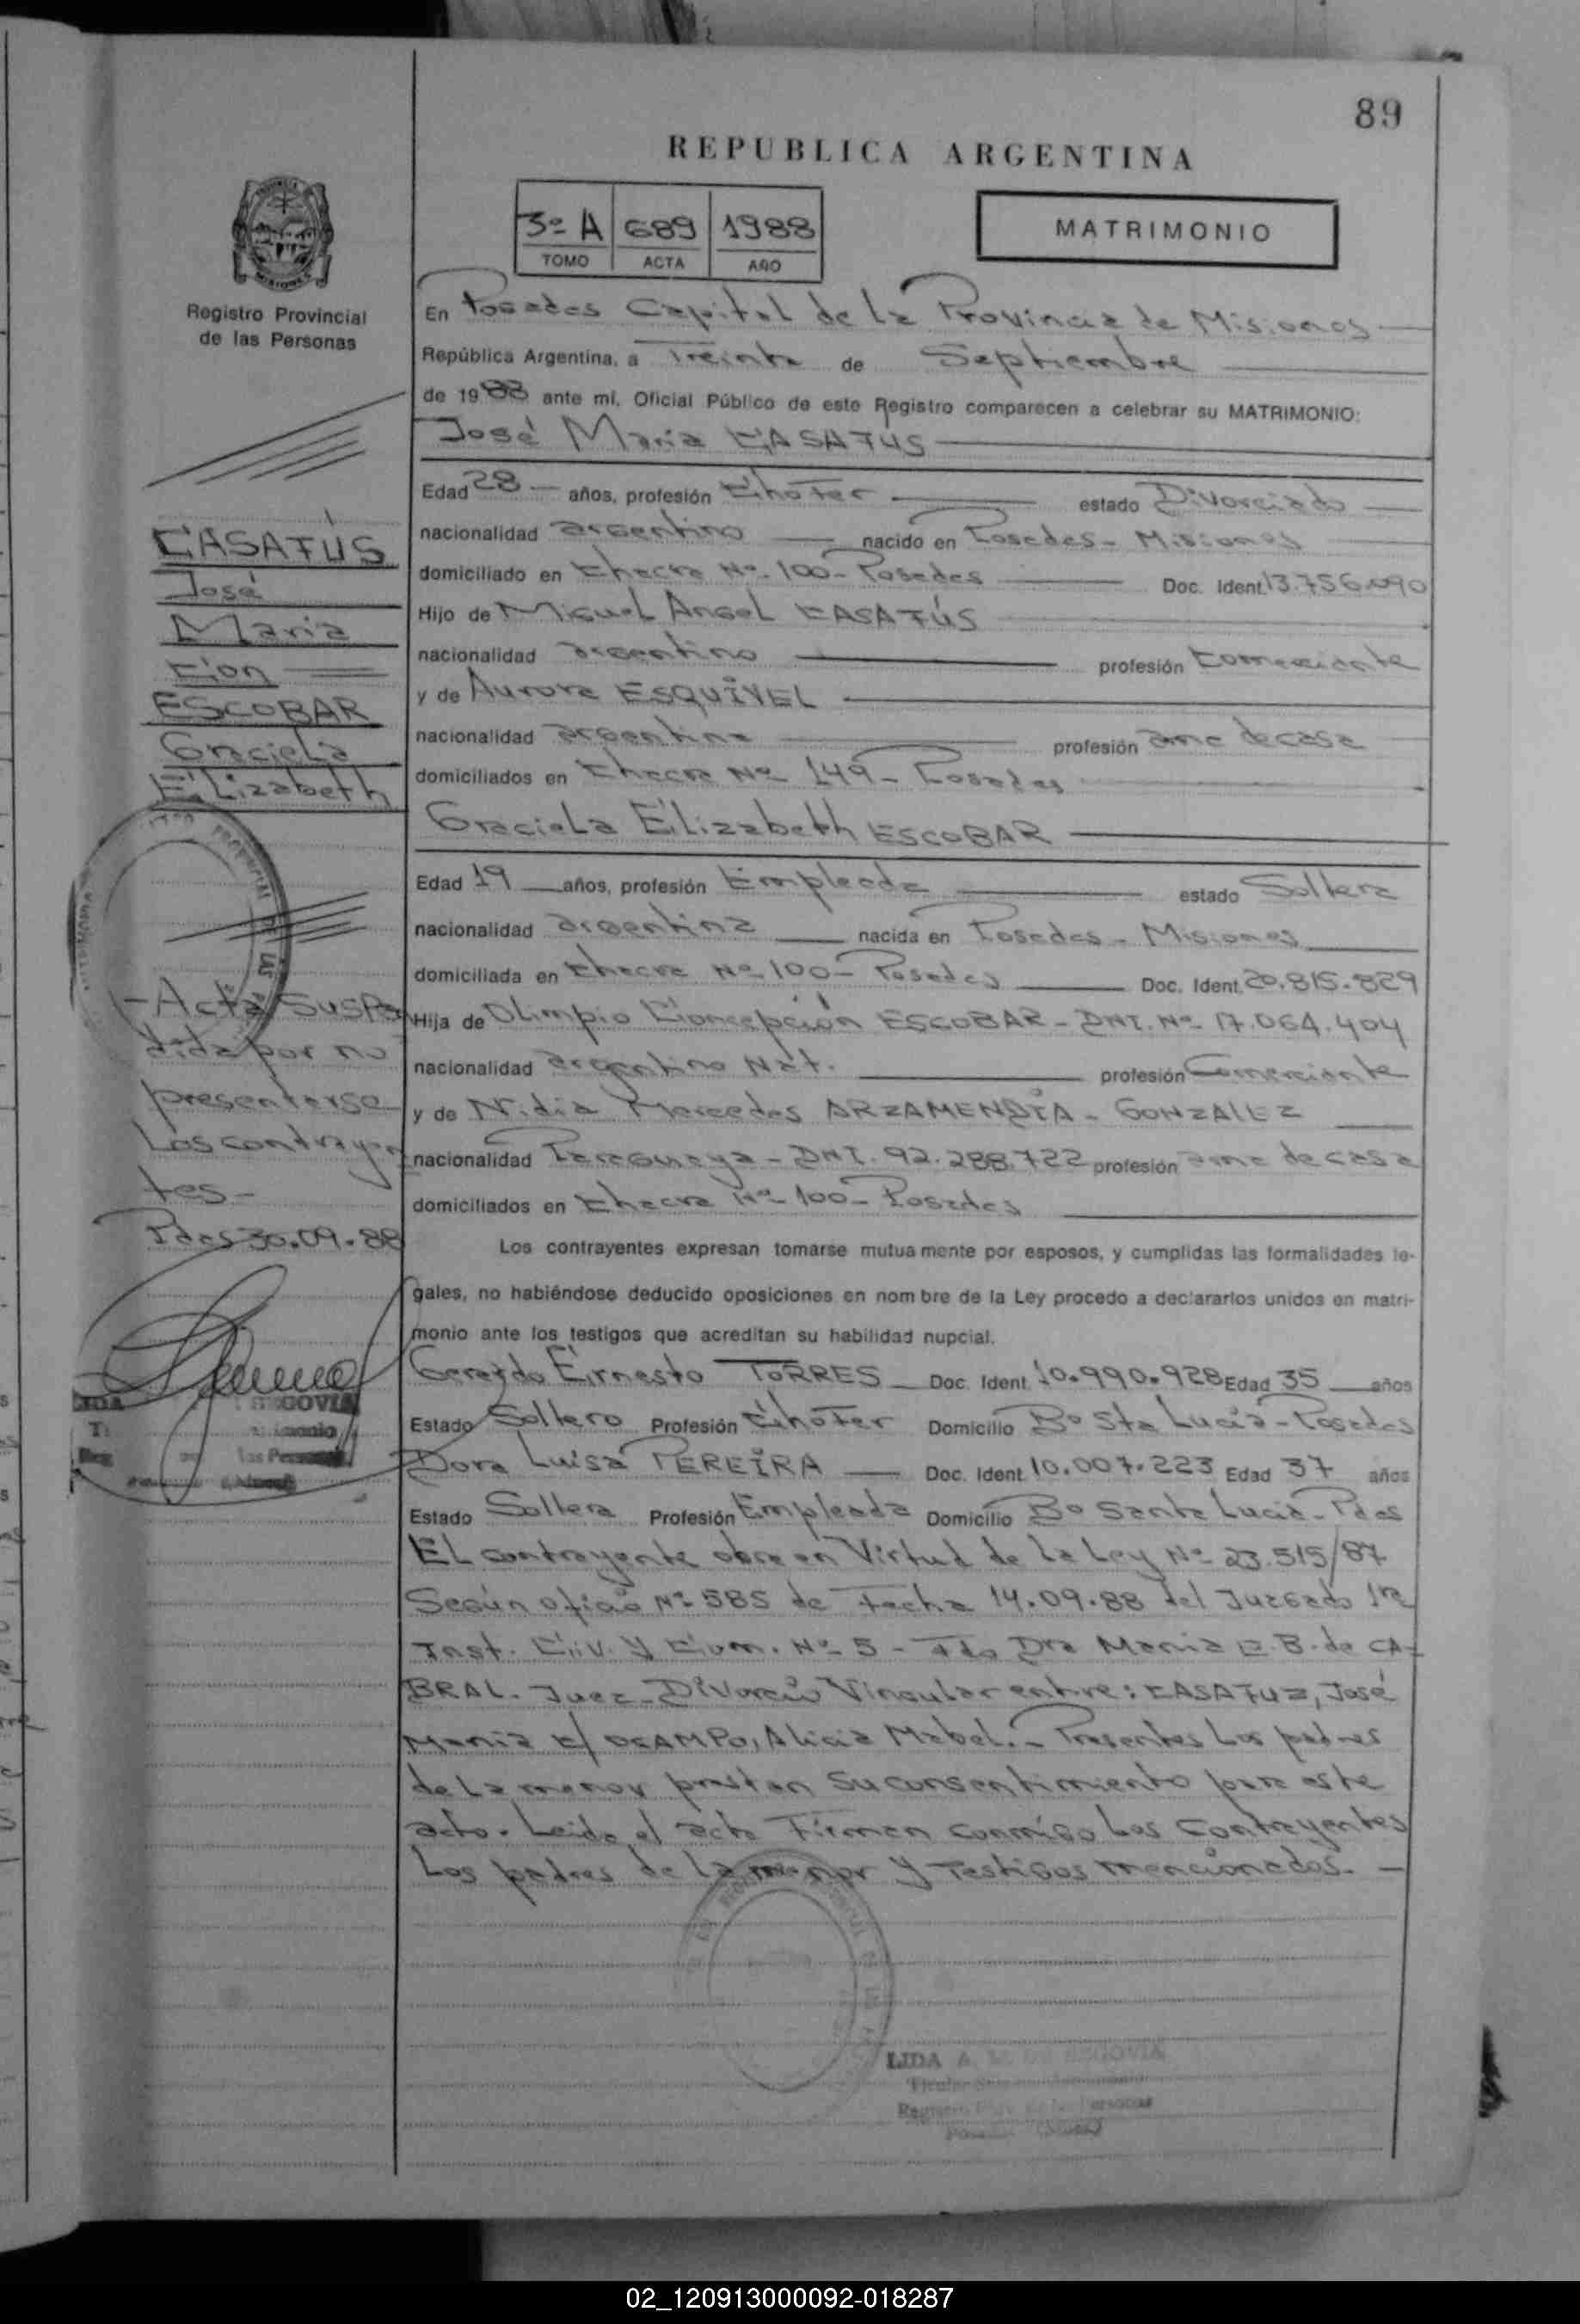 89
REPUBLICA ARGENTINA
3º A 689 1988
TOMO ACTA AÑO
MATRIMONIO
Registro Provincial
de las Personas
CASATÚS
José
Maria
Con
ESCOBAR
Graciela
Elizabeth
- Acta suspen
dida por no
presentarse
Los contrayen
tes -
Pdas 30.09.88
En Posadas Capital de la Provincia de Misiones
República Argentina, a Treinta de Septiembre
de 1988 ante mí, Oficial Público de este Registro comparecen a celebrar su MATRIMONIO:
José Maria CASATUS
Edad 28 años, profesión Chofer estado Divorciado
nacionalidad argentino nacido en Posadas - Misiones
domiciliado en Chacra Nº 100 - Posadas Doc. Ident. 13.756.090
Hijo de Miguel Angel CASATÚS
nacionalidad argentino profesión Comerciante
y de Aurora ESQUIVEL
nacionalidad argentina profesión ama de casa
domiciliados en Chacra Nº 149 - Posadas
Graciela Elizabeth ESCOBAR
Edad 19 años, profesión Empleada estado Soltera
nacionalidad argentina nacida en Posadas - Misiones
domiciliada en Chacra Nº 100 - Posadas Doc. Ident. 20.815.829
Hija de Olimpio Concepción ESCOBAR - DNI. Nº 17.064.404
nacionalidad argentino Nat. profesión Comerciante
y de Nidia Mercedes ARZAMENDIA - GONZALEZ
nacionalidad Paraguaya - DNI. 92.288.722 profesión ama de casa
domiciliados en Chacra Nº 100 - Posadas
Los contrayentes expresan tomarse mutuamente por esposos, y cumplidas las formalidades le-
gales, no habiéndose deducido oposiciones en nombre de la Ley procedo a declararlos unidos en matri-
monio ante los testigos que acreditan su habilidad nupcial.
Gerardo Ernesto TORRES Doc. Ident. 10.990.928 Edad 35 años
Estado Soltero Profesión Chofer Domicilio Bº Sta Lucia - Posadas
Dora Luisa PEREIRA Doc. Ident. 10.007.223 Edad 37 años
Estado Soltera Profesión Empleada Domicilio Bº Santa Lucia - Pdas
El contrayente obra en Virtud de la Ley Nº 23.515/87
Según oficio Nº 585 de Fecha 14.09.88 del Juzgado 1ra
Inst. Civ. y Com. Nº 5 - Fdo Dra Maria E. B. de CA-
BRAL. Juez - Divorcio Vincular entre: CASATUZ, José
Maria C/ OCAMPO, Alicia Mabel. - Presentes los padres
de la menor prestan su consentimiento para este
acto. Leida el acta Firman conmigo los Contrayentes
Los padres de la menor y Testigos mencionados. -
LIDA A. M. DE SEGOVIA
02_120913000092-018287